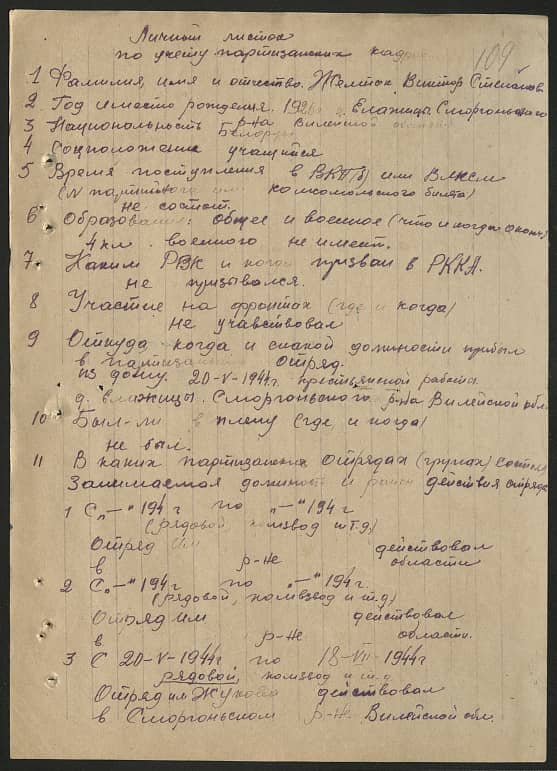 Личный листок
по учету партизанских кадров
109
1 Фамилия, имя и отчество. Желток Виктор Степанов
2 Год и место рождения. г. Влажицы Сморгоньского
р-на Вилейской
3 Национальность Белорус
4 Соцположение учащийся
5 Время поступления в ВКП(б) или ВЛКСМ
(N партийного или комсомольского билета)
не состоит.
6 Образование: общее и военное (что и когда оконч.)
4 кл. военного не имеет.
7 Каким РВК и когда призван в РККА.
не призывался.
8 Участие на фронтах (где и когда)
не учавствовал
9 Откуда, когда и с какой должности прибыл
в партизанский отряд.
из дому. 20-V-1944г. крестьянской работы
д. Влажицы. Сморгоньского р-на Вилейской обл.
10 Был-ли в плену (где и когда)
не был.
11 В каких партизанских отрядах (групах) состоял
Занимаемая должность и район действия отряда
1 С „—" 194 г по „—" 194 г
(рядовой, комвзвод и т.д.)
Отряд им действовал
в р-не области
2 С „—" 194 г. по „—" 194 г.
(рядовой, комвзвод и т.д.)
Отряд им действовал
в р-не области.
3 С 20-V-1944г по 18-VII-1944г
рядовой, комвзвод и т.д.
Отряд им Жукова действовал
в Сморгоньском р-не Вилейской обл.